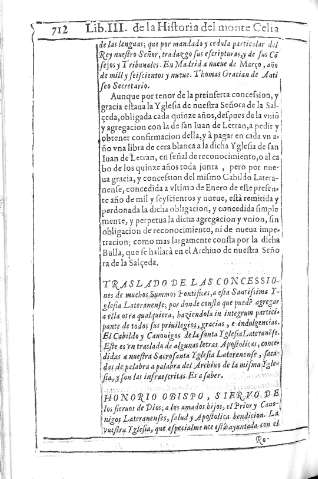 712 Lib.III. de la Historia del monte Celia
de las lenguas; que por mandado y cedula particular del
Rey nuestro Señor, traduzgo sus escripturas, y de sus Cõ
sejos y Tribunales. En Madrid a nueue de Março, año
de mill y seiscientos y nueue. Thomas Gracian de Anti
sco Secretario.
Aunque por tenor de la preinserta concession, y
gracia estaua la Yglesia de nuestra Señora de la Sal-
çeda, obligada cada quinze años, despues de la visiõ
y agregacion con la de san Iuan de Letran, a pedir y
obtener confirmacion della, y à pagar en cada vn a-
ño vna libra de cera blanca a la dicha Yglesia de san
Iuan de Letran, en señal de reconocimiento, o al ca
bo de los quinze años toda junta, pero por nue-
ua gracia, y concession del mismo Cabildo Latera-
nense, concedida a vltimo de Enero de este presen-
te año de mill y seyscientos y nueue, está remitida y
perdonada la dicha obligacion, y concedida simple
mente, y perpetua la dicha agregacion y vnion, sin
obligacion de reconocimiento, ni de nueua impe-
tracion; como mas largamente consta por la dicha
Bulla, que se hallarà en el Archiuo de nuestra Seño
ra de la Salçeda.
TRASLADO DE LAS CONCESSIO-
nes de muchos Summos Pontifices, a esta Santissima Y-
glesia Lateranense, por donde consta que puede agregar
a ella otra qualquiera, haziendola in integrum partici-
pante de todos sus priuilegios, gracias, e indulgencias.
El Cabildo y Canonigos de la santa Yglesia Lateranẽse.
Este es vn traslado de algunas letras Apostolicas, conce-
didas a nuestra Sacrosanta Yglesia Lateranense, saca-
dos de palabra a palabra del Archiuo de la misma Ygle-
sia, y son las infrascritas Es a saber.
HONORIO OBISPO, SIERVO DE
los sieruos de Dios, a los amados hijos, el Prior y Cano-
nigos Lateranenses, salud y Apostolica bendicion. La
vuestra Yglesia, que especialmente està ayuntada con el
Ro-